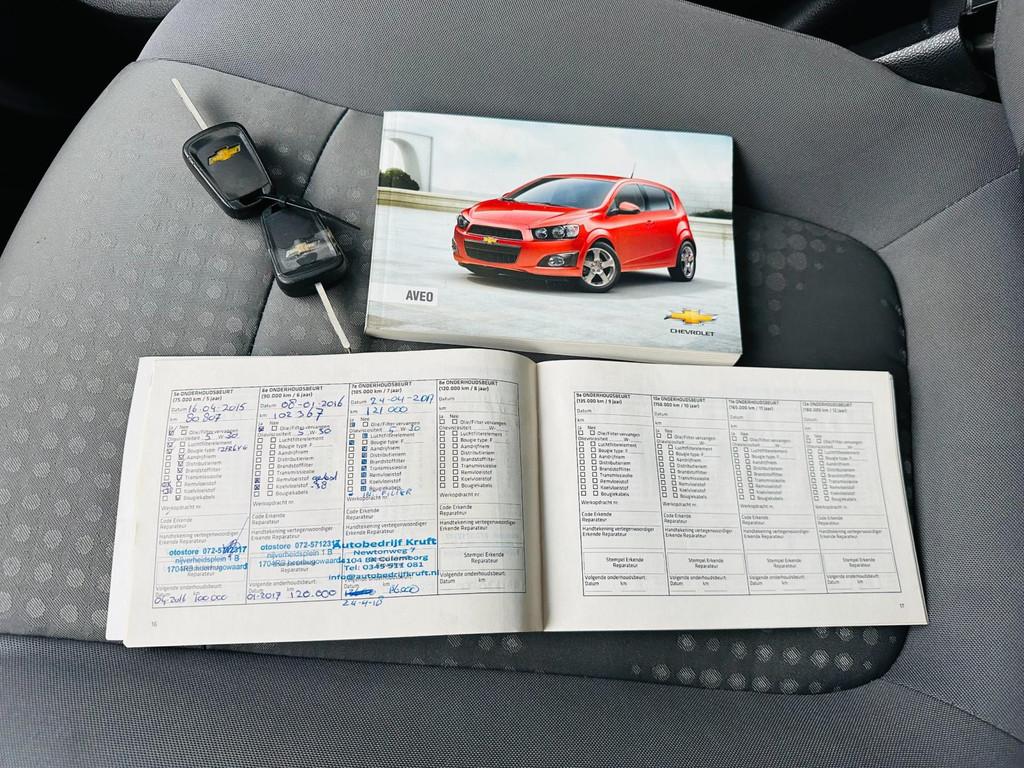 AVEO
CHEVROLET
5e ONDERHOUDSBEURT
(75.000 km / 5 jaar)
Datum 16-04-2015
km 80 807
Ja Nee
Olie/Filter vervangen
Olieviscositeit 5 W- 30
Luchtfilterelement
Bougie type: F
Aandrijfriem
Distributieriem
Brandstoffilter
Transmissieolie
Remvloeistof
Koelvloeistof
Bougiekabels
Werkopdracht nr.
Code Erkende
Reparateur
Handtekening vertegenwoordiger
Erkende Reparateur
otostore 072-5712317
nijverheidsplein 1 B
Volgende onderhoudsbeurt:
Datum km
04-2016 100.000
6e ONDERHOUDSBEURT
(90.000 km / 6 jaar)
Datum 08-01-2016
km 102 367
Ja Nee
Olie/Filter vervangen
Olieviscositeit 5 W- 30
Luchtfilterelement
Bougie type: F
Aandrijfriem
Distributieriem
Brandstoffilter
Transmissieolie
Remvloeistof
Koelvloeistof -38
Bougiekabels
Werkopdracht nr.
Code Erkende
Reparateur
Handtekening vertegenwoordiger
Erkende Reparateur
otostore 072-5712317
nijverheidsplein 1 B
Volgende onderhoudsbeurt:
Datum km
01-2017 120.000
7e ONDERHOUDSBEURT
(105.000 km / 7 jaar)
Datum 24-04-2017
km 121 000
Ja Nee
Olie/Filter vervangen
Olieviscositeit 5 W- 30
Luchtfilterelement
Bougie type: F
Aandrijfriem
Distributieriem
Brandstoffilter
Transmissieolie
Remvloeistof
Koelvloeistof
Bougiekabels
INT. FILTER
Werkopdracht nr.
Code Erkende
Reparateur
Handtekening vertegenwoordiger
Erkende Reparateur
Autobedrijf Kruft
Newtonweg 7
4104 BK Culemborg
Tel: 0345-511 081
info@autobedrijfkruft.nl
Volgende onderhoudsbeurt:
Datum km
24-4-18
8e ONDERHOUDSBEURT
(120.000 km / 8 jaar)
Datum
km
Ja Nee
Olie/Filter vervangen
Olieviscositeit W-
Luchtfilterelement
Bougie type: F
Aandrijfriem
Distributieriem
Brandstoffilter
Transmissieolie
Remvloeistof
Koelvloeistof
Bougiekabels
Werkopdracht nr.
Code Erkende
Reparateur
Handtekening vertegenwoordiger
Erkende Reparateur
Stempel Erkende
Reparateur
Volgende onderhoudsbeurt:
Datum km
16
9e ONDERHOUDSBEURT
(135.000 km / 9 jaar)
Datum
km
Ja Nee
Olie/Filter vervangen
Olieviscositeit W-
Luchtfilterelement
Bougie type: F
Aandrijfriem
Distributieriem
Brandstoffilter
Transmissieolie
Remvloeistof
Koelvloeistof
Bougiekabels
Werkopdracht nr.
Code Erkende
Reparateur
Handtekening vertegenwoordiger
Erkende Reparateur
Stempel Erkende
Reparateur
Volgende onderhoudsbeurt:
Datum km
10e ONDERHOUDSBEURT
(150.000 km / 10 jaar)
Datum
km
Ja Nee
Olie/Filter vervangen
Olieviscositeit W-
Luchtfilterelement
Bougie type: F
Aandrijfriem
Distributieriem
Brandstoffilter
Transmissieolie
Remvloeistof
Koelvloeistof
Bougiekabels
Werkopdracht nr.
Code Erkende
Reparateur
Handtekening vertegenwoordiger
Erkende Reparateur
Stempel Erkende
Reparateur
Volgende onderhoudsbeurt:
Datum km
11e ONDERHOUDSBEURT
(165.000 km / 11 jaar)
Datum
km
Ja Nee
Olie/Filter vervangen
Olieviscositeit W-
Luchtfilterelement
Bougie type: F
Aandrijfriem
Distributieriem
Brandstoffilter
Transmissieolie
Remvloeistof
Koelvloeistof
Bougiekabels
Werkopdracht nr.
Code Erkende
Reparateur
Handtekening vertegenwoordiger
Erkende Reparateur
Stempel Erkende
Reparateur
Volgende onderhoudsbeurt:
Datum km
12e ONDERHOUDSBEURT
(180.000 km / 12 jaar)
Datum
km
Ja Nee
Olie/Filter vervangen
Olieviscositeit W-
Luchtfilterelement
Bougie type: F
Aandrijfriem
Distributieriem
Brandstoffilter
Transmissieolie
Remvloeistof
Koelvloeistof
Bougiekabels
Werkopdracht nr.
Code Erkende
Reparateur
Handtekening vertegenwoordiger
Erkende Reparateur
Stempel Erkende
Reparateur
Volgende onderhoudsbeurt:
Datum km
17